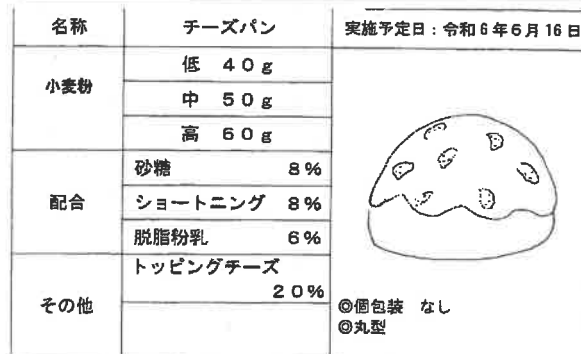 名称 チーズパン 実施予定日：令和6年6月16日
小麦粉
低 40g
中 50g
高 60g
配合
砂糖 8%
ショートニング 8%
脱脂粉乳 6%
その他
トッピングチーズ
20%
◎個包装 なし
◎丸型